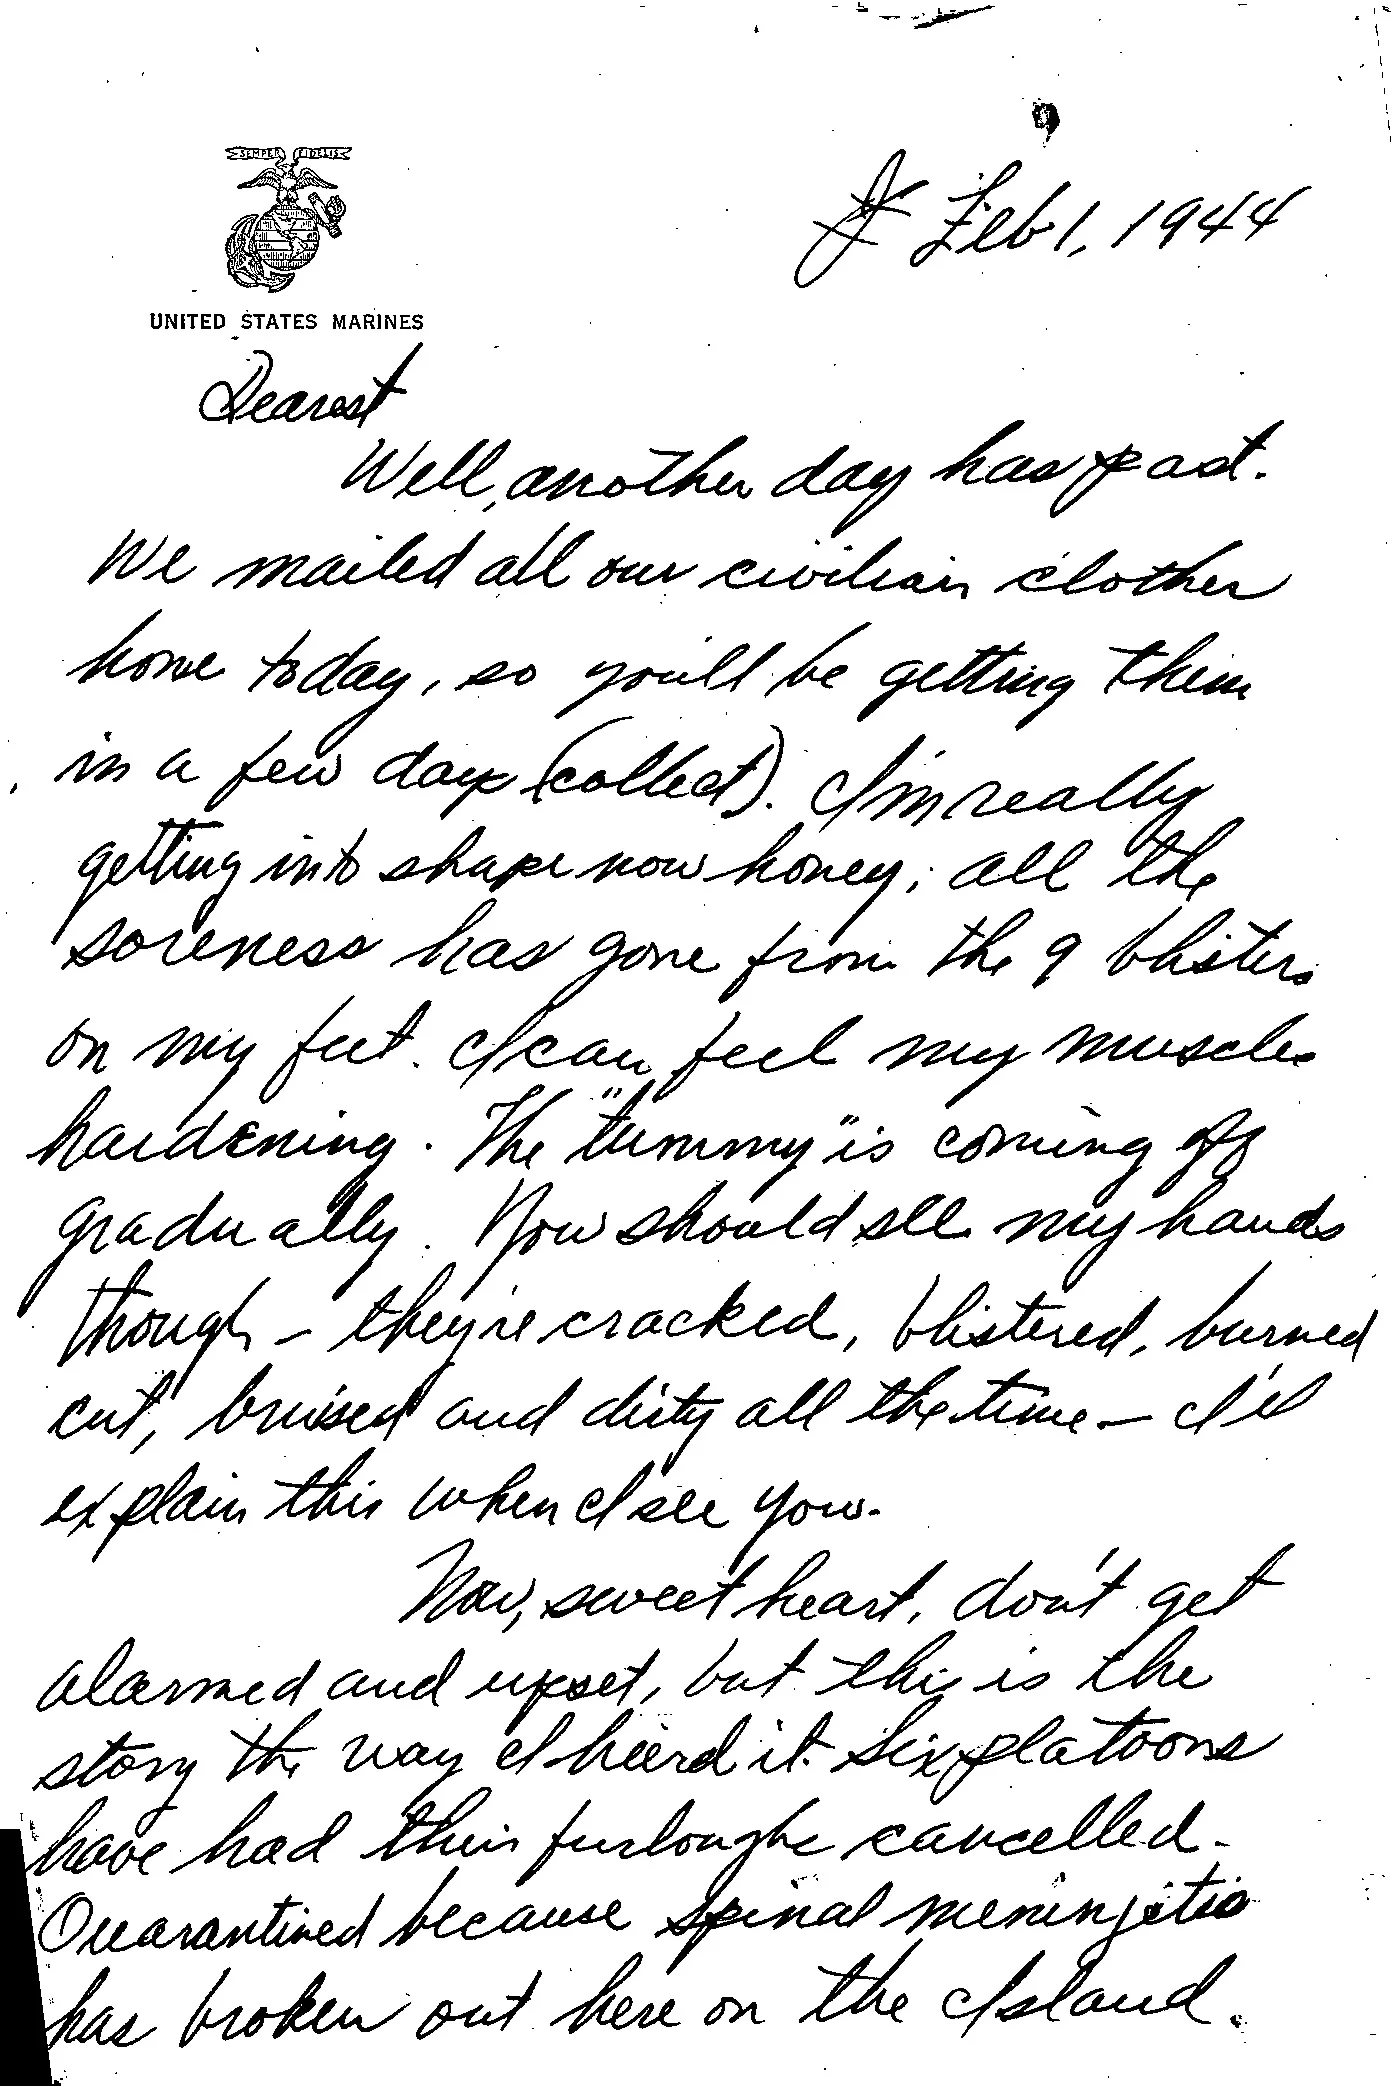 SEMPER FIDELIS
UNITED STATES MARINES
Feb 1, 1944
Dearest
Well, another day has past.
We mailed all our civilian clothes
home today, so you'll be getting them
in a few days (collect). I'm really
getting into shape now honey, all the
soreness has gone from the 9 blisters
on my feet. I can feel my muscles
hardening. The "tummy" is coming off
gradually. You should see my hands
though - they're cracked, blistered, burned
cut, bruised and dirty all the time - I'll
explain this when I see you.
Now, sweetheart, don't get
alarmed and upset, but this is the
story the way I heard it. Six platoons
have had their furloughs cancelled.
Quarantined because spinal meningitis
has broken out here on the Island.